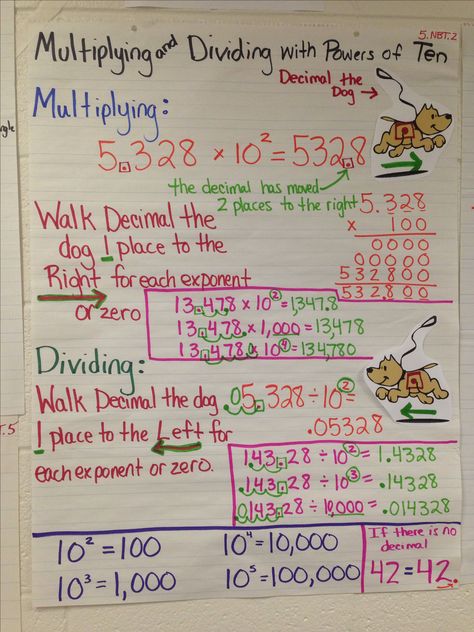 5.NBT.2
Multiplying and Dividing with Powers of Ten
Decimal the
Dog
Multiplying:
5.328 × 10² = 532.8
the decimal has moved
2 places to the right
5.328
× 100
0000
00000
532800
532.800
Walk Decimal the
dog 1 place to the
Right for each exponent
or zero
13.478 × 10² = 1347.8
13.478. × 1,000 = 13,478
13.4780 × 10⁴ = 134,780
Dividing:
Walk Decimal the dog
1 place to the Left for
each exponent or zero.
.05.328 ÷ 10² =
.05328
1.43.28 ÷ 10² = 1.4328
.143.28 ÷ 10³ = .14328
.0143.28 ÷ 10,000 = .014328
10² = 100
10⁴ = 10,000
10³ = 1,000
10⁵ = 100,000
If there is no
decimal
42 = 42.
T.5